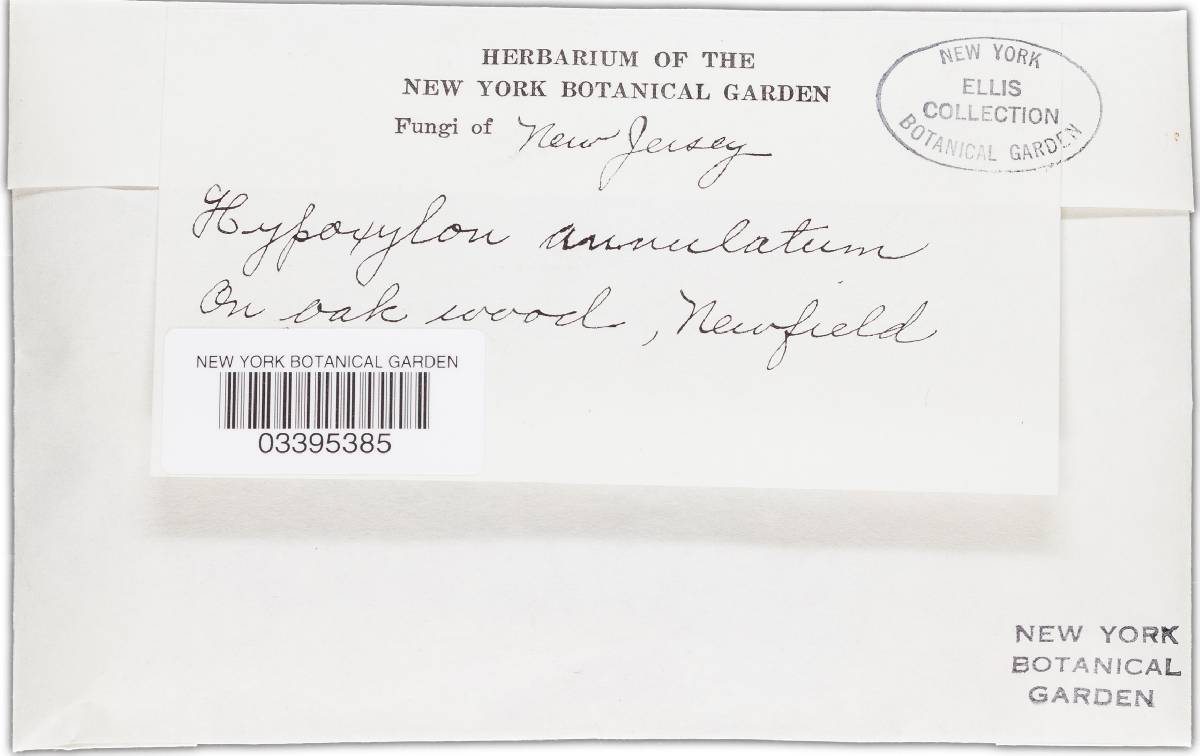 HERBARIUM OF THE
NEW YORK BOTANICAL GARDEN
Fungi of New Jersey
NEW YORK
ELLIS
COLLECTION
BOTANICAL GARDEN
Hypoxylon annulatum
On oak wood, Newfield
NEW YORK BOTANICAL GARDEN
03395385
NEW YORK
BOTANICAL
GARDEN